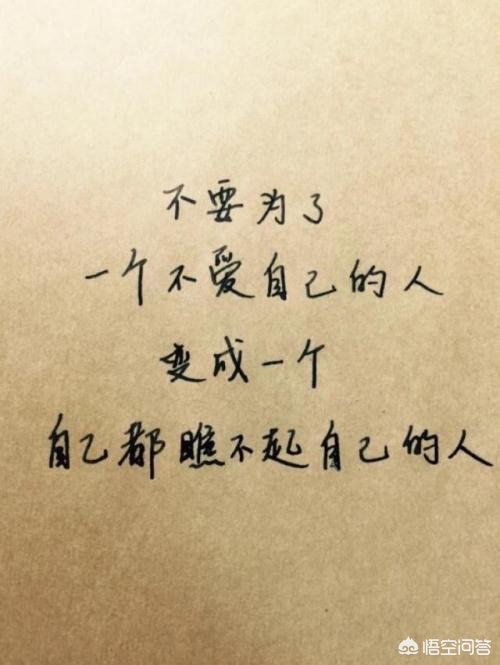 不要为了
一个不爱自己的人
变成一个
自己都瞧不起自己的人
悟空问答